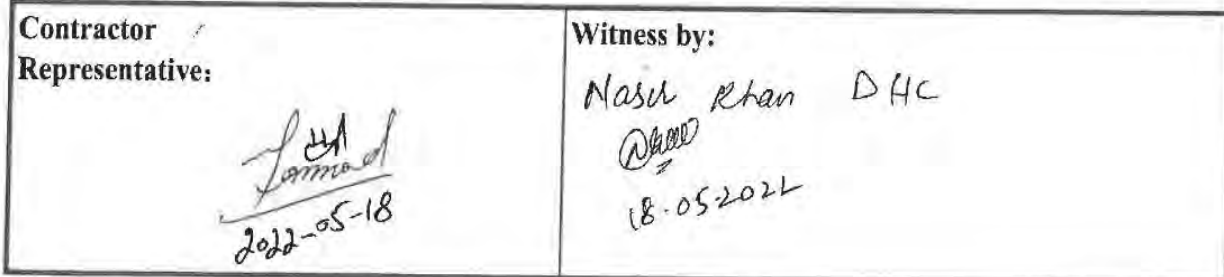 Contractor
Representative:
2022-05-18
Witness by:
Nasir Khan DHC
18.05.2022